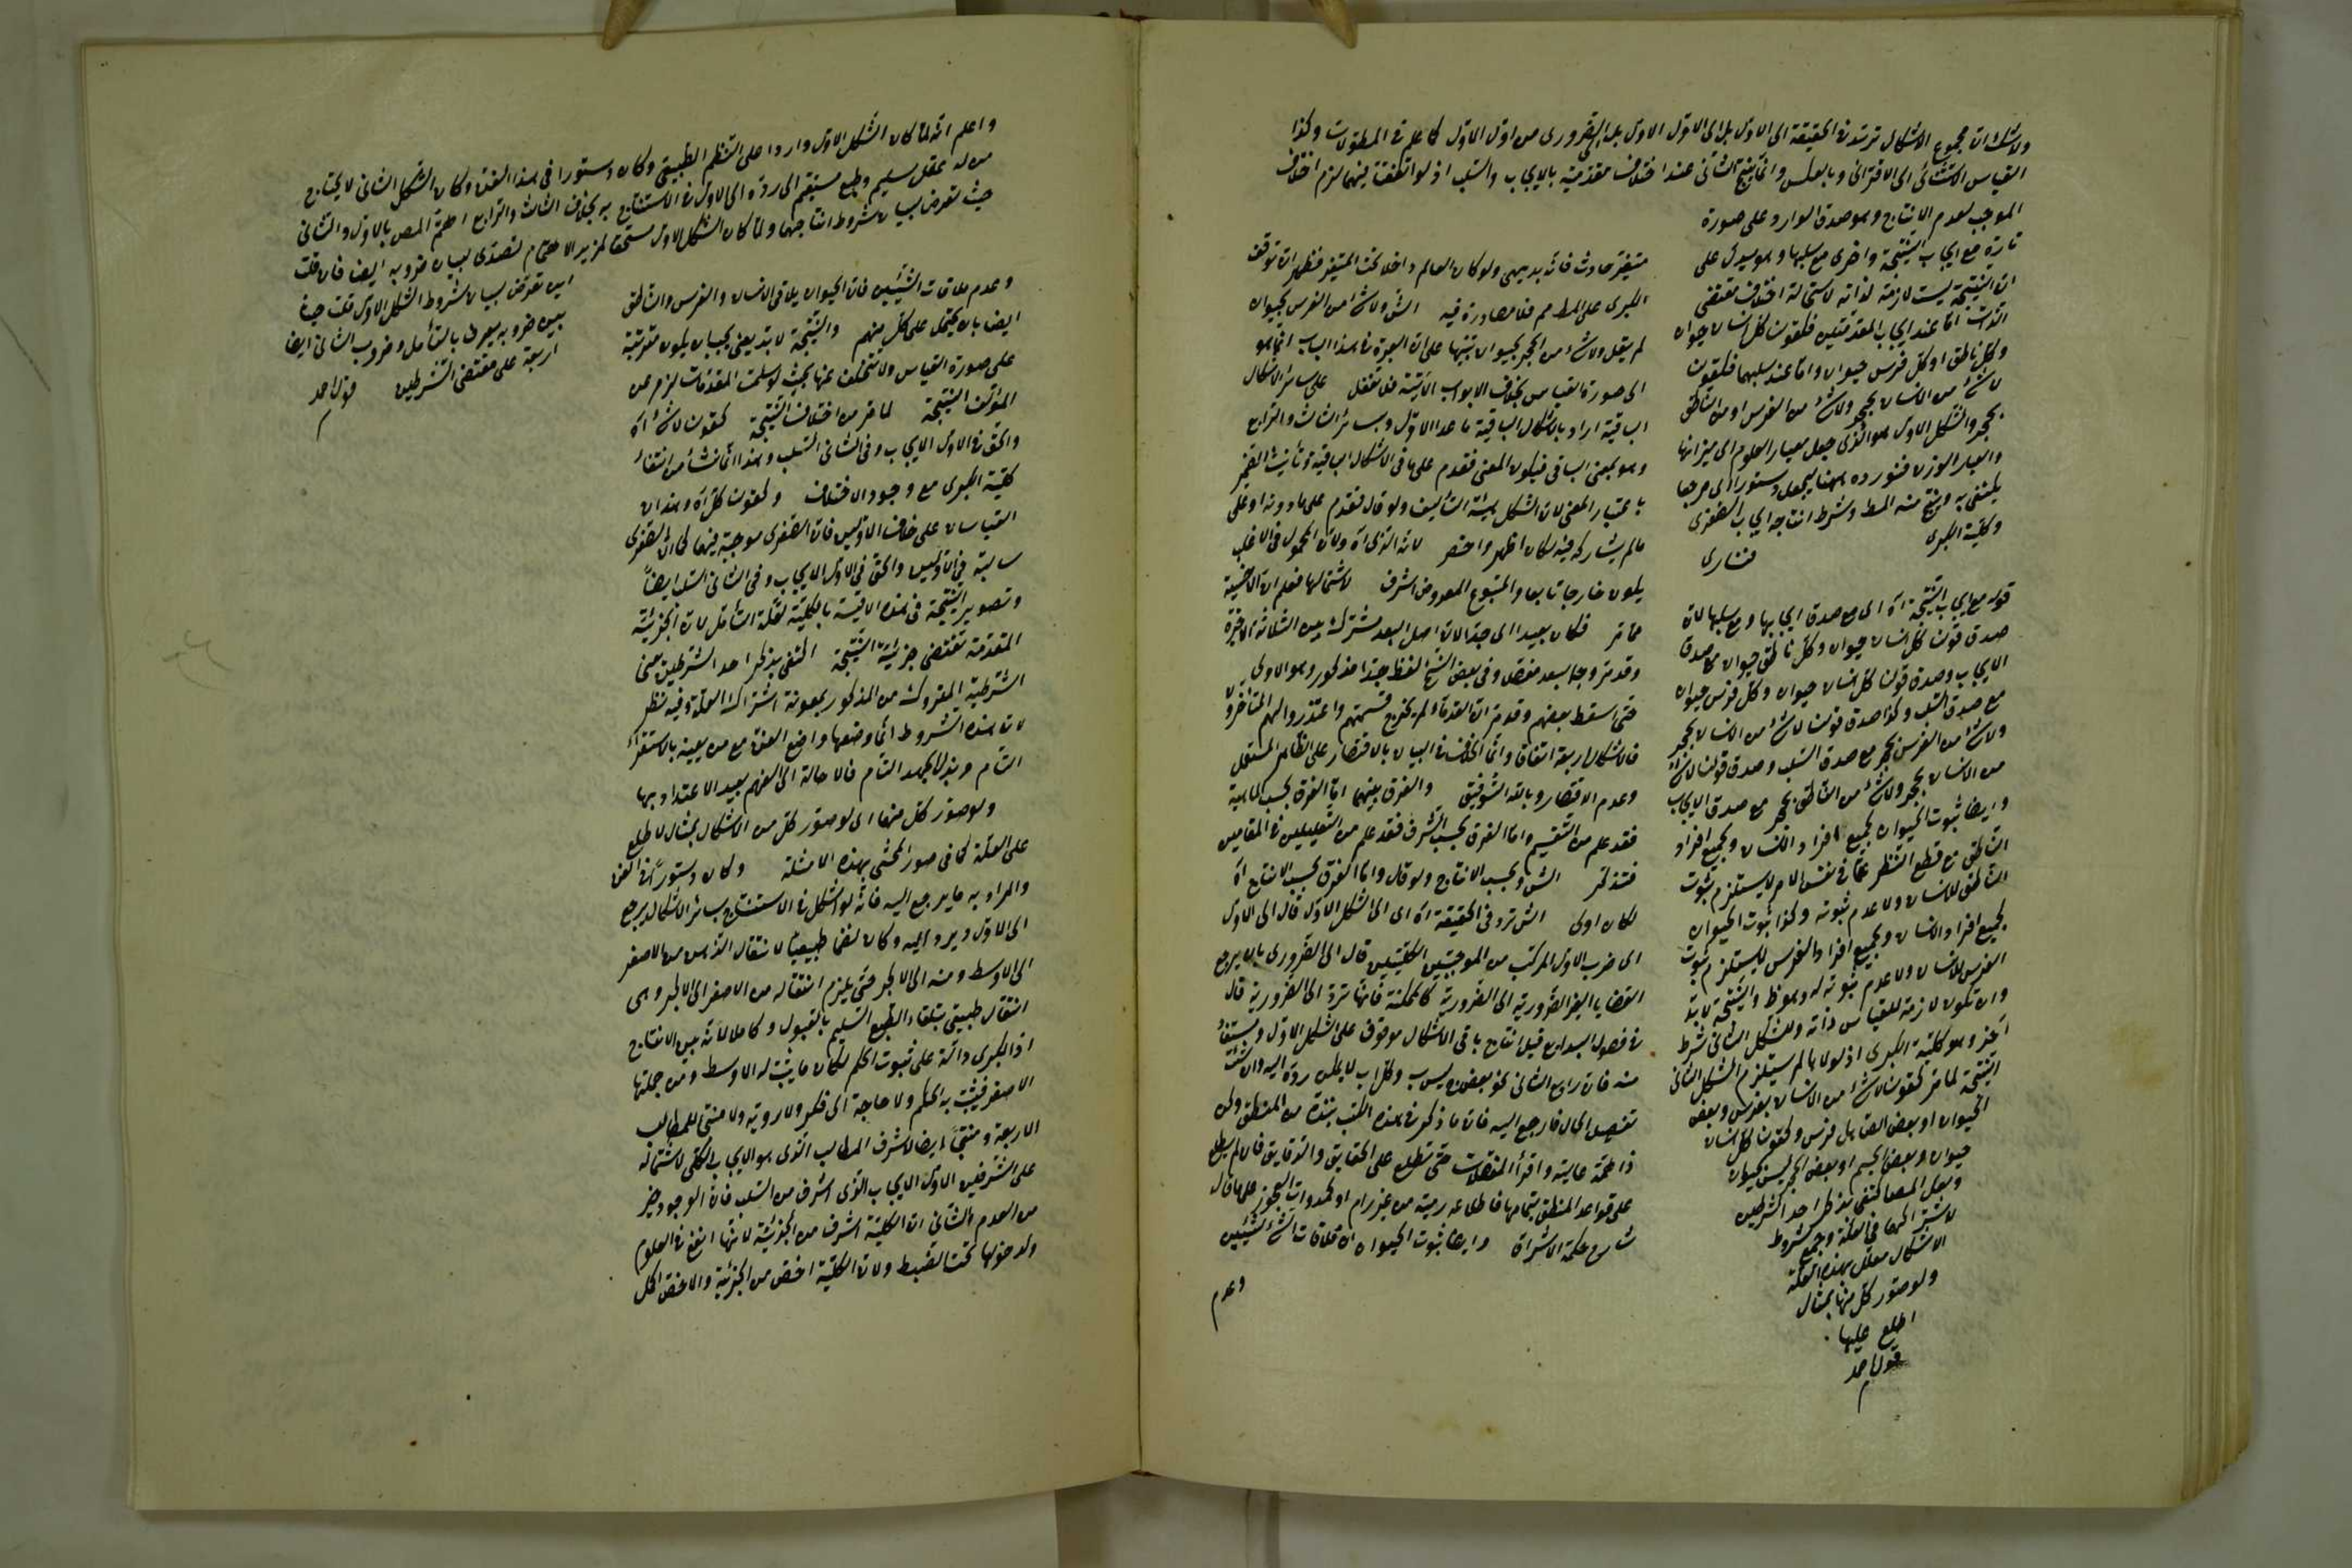 ولا شك ان مجموع الاشكال ترتد فى الحقيقة الى الاول بل الى الاول الاول بل الى الضرورى من اول الاول كما علم فى المطولات وكذا
القياس الاستثنائى الى الاقترانى وبالعكس وانما ينتج الثانى عند اختلاف مقدمتيه بالايجاب والسلب اذ لو اتفقتا فيهما لزم اختلاف
الموجب لعدم الانتاج وهو صدق الوارد على صورة
تارة مع ايجاب النتيجة واخرى مع سلبها وهو يدل على
ان النتيجة ليست لازمة لذاته لاستحالة اختلاف مقتضى
الذات اما عند ايجاب المقدمتين فلقولنا كل انسان حيوان
وكل ناطق او كل فرس حيوان واما عند سلبهما فلقولنا
لا شئ من الانسان بحجر ولا شئ من الفرس او من الناطق
بحجر والشكل الاول هو الذى جعل معيار العلوم اى ميزانها
والعيار الوزن فنورده ههنا ليجعل دستورا اى مرجعا
يكتفى به وينتج منه المط وشرط انتاجه ايجاب الصغرى
وكلية الكبرى
فنارى
قوله مع ايجاب النتيجة آه اى مع صدق ايجابها ومع سلبها لان
صدق قولنا كل انسان حيوان وكل ناطق حيوان مع صدق
الايجاب وصدق قولنا كل انسان حيوان وكل فرس حيوان
مع صدق السلب وكذا صدق قولنا لا شئ من الانسان بحجر
ولا شئ من الفرس بحجر مع صدق السلب وصدق قولنا لا شئ
من الانسان بحجر ولا شئ من الناطق بحجر مع صدق الايجاب
وايضا ثبوت الحيوان لجميع افراد الانسان ولجميع افراد
الناطق مع قطع النظر عما فى نفس الامر لا يستلزم ثبوت
الناطق للانسان ولا عدم ثبوته وكذا ثبوت الحيوان
لجميع افراد الانسان ولجميع افراد الفرس لا يستلزم ثبوت
الفرس للانسان ولا عدم ثبوته له وهو ظ والنتيجة لابد
وان تكون لازمة للقياس لذاته وللشكل الثانى شرط
آخر وهو كلية الكبرى اذ لولاها لم يستلزم الشكل الثانى
النتيجة لما مر كقولنا لا شئ من الانسان بفرس وبعض
الحيوان او بعض الصاهل فرس وكقولنا كل انسان
حيوان وبعض الجسم او بعض الحجر ليس بحيوان
ولعل المص اكتفى بذكر احد الشرطين
لاشتراكهما فى العلة وجميع شروط
الاشكال معلل بهذه العلة
ولو صور كل منها بمثال
اطلع عليها
قول احمد
متغير حادث فانه بديهى ولو كان العالم داخلا تحت المتغير فظهر ان توقف
الكبرى على المط مم فلا مصادرة فيه الش ولا شئ من الفرس بحيوان
لم يقل ولا شئ من الحجر بحيوان تنبيها على ان العبرة فى هذا الباب انما هو
الى صورة القياس بخلاف الابواب الآتية فلا تغفل على سائر الاشكال
الباقية اراد بالاشكال الباقية ما عدا الاول وبسائر الثالث والرابع
وهو بمعنى الباقى فيكون المعنى فقدم على ما فى الاشكال الباقية وتأنيث الضمير
باعتبار المعنى لان الشكل هيئة التأليف ولو قال فقدم على ما دونه او على
مالم يشاركه فيه لكان اظهر واخصر لانه الذى آه ولان المحمول فى الاغلب
يكون خارجا تابعا والمتبوع المعروض اشرف لاشتمالها فعلم ان الاخسية
مما مر فكان بعيدا اى جدا لان اصل البعد مشترك بين الثلاثة الاخيرة
وقد مر وجه البعد مفصلا وفى بعض النسخ لفظ جدا مذكور وهو الاولى
حتى اسقط بعضهم وقد مر ان القدماء لم يخرج قسمتهم واعتذروا لهم المتأخرون
فالاشكال اربعة اتفاقا وانما الخلاف فى البيان بالاقتصار على الكامل المستعمل
وعدم الاقتصار وبالله التوفيق والفرق بينهما اى الفرق بحسب الماهية
فقد علم من التقسيم واما الفرق بحسب الشرف فقد علم من التعليلين فى المقامين
فتذكر الش وبحسب الانتاج ولو قال واما الفرق بحسب الانتاج آه
لكان اولى الش ترد فى الحقيقة آه اى الى الشكل الاول قال الى الاول
اى ضرب الاول المركب من الموجبتين الكليتين قال الى الضرورى بان يرجع
القضايا الغير الضرورية الى الضرورية كالممكنة فانها ترد الى الضرورية قال
فى فصول البدايع قيل انتاج باقى الاشكال موقوف على الشكل الاول ومستفاد
منه فان رابع الثانى نحو بعض ج ليس ب وكل ا ب لا يمكن رده اليه وان شئت
تفصيل الحال فارجع اليه فان ما ذكر فى هذه الكتب نبذة من المنطق وكن
ذا همة عالية واقرأ المفصلات حتى تطلع على الحقايق والدقايق فان لم يطلع
على قواعد المنطق بتمامها فاطلاعه رمية من غير رام او كمداواة العجوز على ما قال
شارح حكمة الاشراق وايضا ثبوت الحيوان آه ملاقات الشئ لشيئين
وعدم
واعلم انه لما كان الشكل الاول واردا على النظم الطبيعى وكان دستورا فى هذا الفن وكان الشكل الثانى لا يحتاج
من له عقل سليم وطبع مستقيم الى رده الى الاول فى الاستنتاج به بخلاف الثالث والرابع اهتم المص بالاول والثانى
حيث تعرض لبيان شروط انتاجهما ولما كان الشكل الاول مستحقا لمزيد الاهتمام تصدى لبيان ضروبه ايضا فان قلت
اين تعرض لبيان شروط الشكل الاول قلت حيث
بين ضروبه يعرف بالتأمل وضروب الثانى ايضا
اربعة على مقتضى الشرطين قول احمد
وعدم ملاقات الشيئين فان الحيوان يلاقى الانسان والفرس والناطق
ايضا بان يحمل على كل منهم والنتيجة لابد يعنى يجب ان يكون متفرعة
على صورة القياس ولا تتخلف عنها بحيث لو سلمت المقدمات لزم من
المؤلف النتيجة لما مر من اختلاف النتيجة كقولنا لا شئ آه
والحق فى الاول الايجاب وفى الثانى السلب وهذا انما نشأ من انتفاء
كلية الكبرى مع وجود الاختلاف وكقولنا كل آه وهذان
القياسان على خلاف الاولين فان الصغرى موجبة فيهما كما ان الصغرى
سالبة فى الاولين والحق فى الاول الايجاب وفى الثانى السلب ايضا
وتصوير النتيجة فى هذه الاقيسة بالكلية لقلة التأمل لان الجزئية
المتقدمة تقتضى جزئية النتيجة اكتفى بذكر احد الشرطين يعنى
الشرطية المتروك من المذكور بمعونة اشتراك العلة وفيه نظر
لان هذه الشروط انما وضعها واضع الفن مع من يعينه بالاستقراء
التام وبذل الجهد التام فالاحالة الى الفهم بعيد الاعتداد بها
ولو صور كل منها اى لو صور كل من الاشكال بمثال لاطلع
على العلة كما فى صور المحشى بهذه الامثلة وكان دستورا فى الفن
والمراد به ما يرجع اليه فانه لو اشكل فى الاستنتاج بسائر الاشكال يرجع
الى الاول ويرد اليه وكان نظما طبيعيا لانتقال الذهن من الاصغر
الى الاوسط ومنه الى الاكبر حتى يلزم انتقاله من الاصغر الى الاكبر وهى
انتقال طبيعى بتلقاء الطبع السليم بالقبول وكاملا لانه بين الانتاج
اذ الكبرى دالة على ثبوت الحكم لكل ما يثبت له الاوسط ومن جملتها
الاصغر فيثبت به الحكم ولا حاجة الى فكر ولا روية ولا منتج للمطالب
الاربعة ومنتجا ايضا لاشرف المطالب الذى هو الايجاب الكلى لاشتماله
على الشرفين الاول الايجاب الذى اشرف من السلب فان الوجود خير
من العدم الثانى ان الكلية اشرف من الجزئية لانها انفع فى العلوم
ولدخولها تحت الضبط ولان الكلية اخص من الجزئية والاخص اكمل